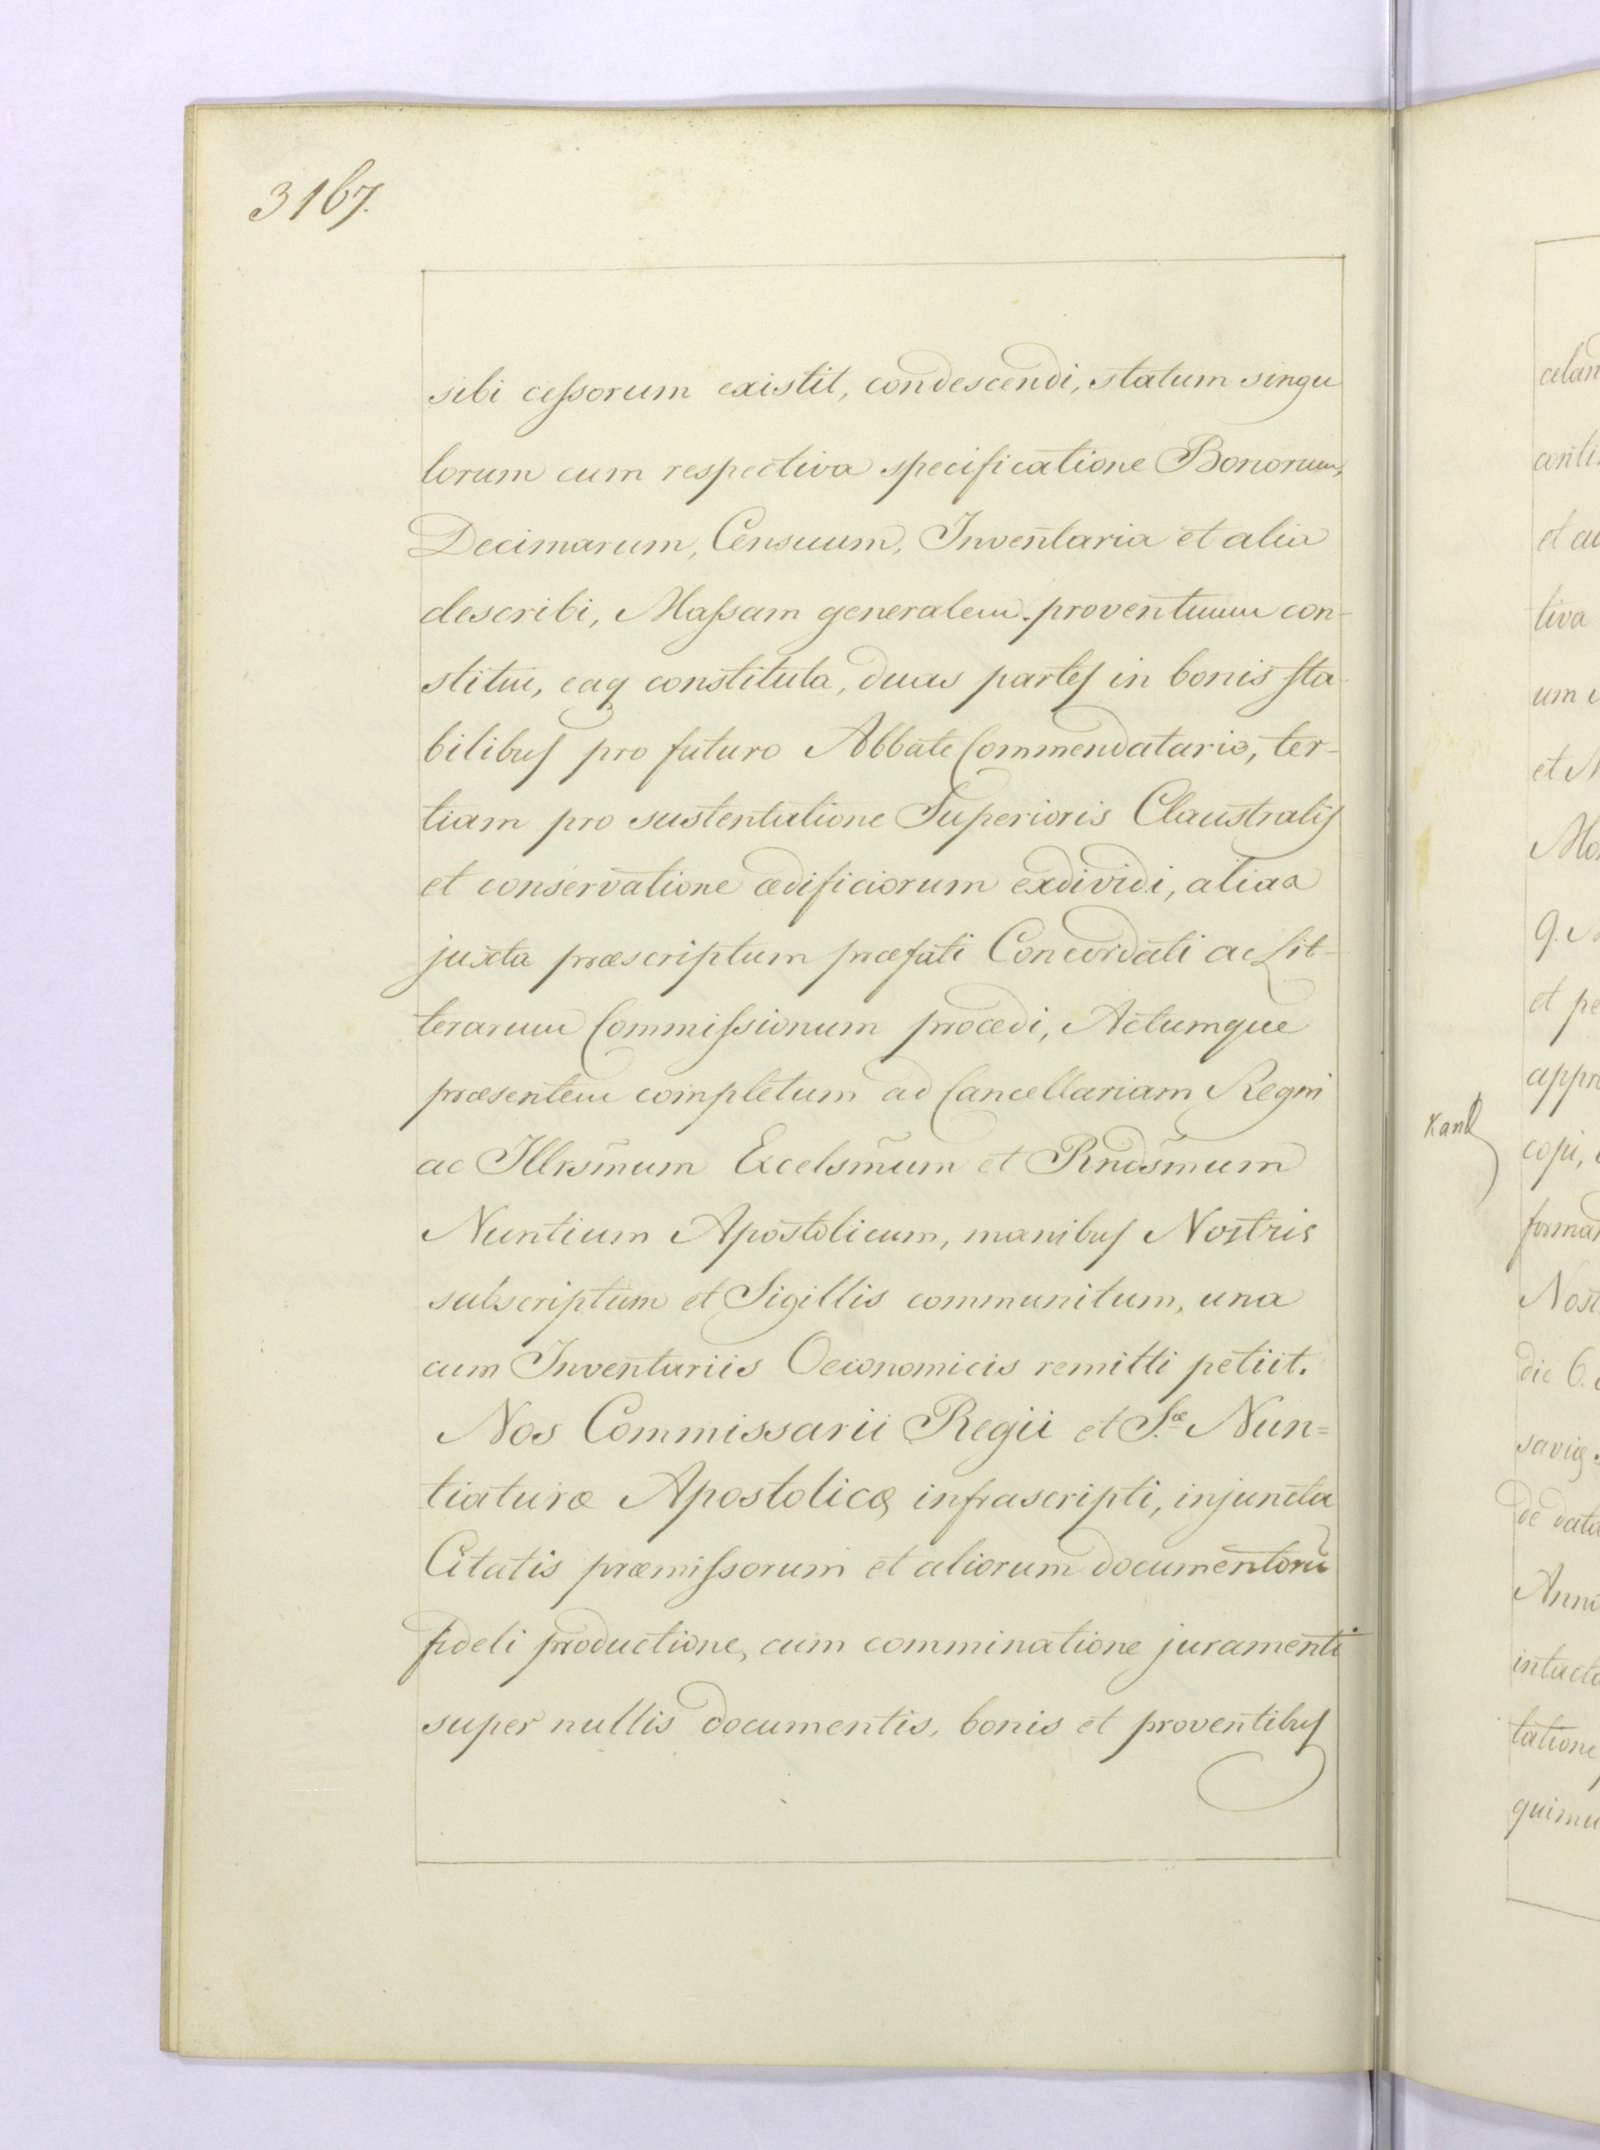 3167.
sibi cessorum existit, condescendi, statum singu
lorum cum respectiva specificatione Bonorum,
Decimarum, Censuum, Inventaria et alia
describi, Massam generalem proventuum con-
stitui, eaq constituta, duas partes in bonis sta-
bilibus pro futuro Abbate Commendatario, ter-
tiam pro sustentatione Superioris Claustralis
et conservatione ædificiorum exdividi, aliaa
juxta præscriptum præfati Concordati ac Lit-
terarum Commissionum procedi, Actumque
præsentem completum ad Cancellariam Regni
ac Illrsm̃um Excelsm̃um et Rndsm̃um
Nuntium Apostolicum, manibus Nostris
subscriptum et Sigillis communitum, una
cum Inventariis Oeconomicis remitti petiit.
Nos Commissarii Regii et S.æ Nun=
tiaturæ Apostolicæ infrascripti, injuncta
Citatis præmissorum et aliorum documentorũ
fideli productione, cum comminatione juramenti
super nullis documentis, bonis et proventibus
celan
et au
tiva
um
et
Mo
q.
et pe
appr
copi,
forma
Nost
die 6.
de data
Anni
tatione
quimu